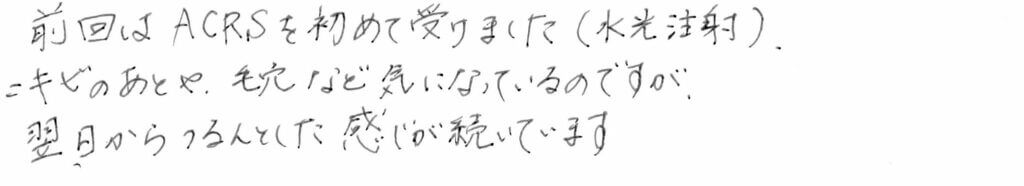 前回は ACRSを初めて受けました（水光注射）.
ニキビのあとや. 毛穴など気になっているのですが.
翌日からつるんとした感じが続いています